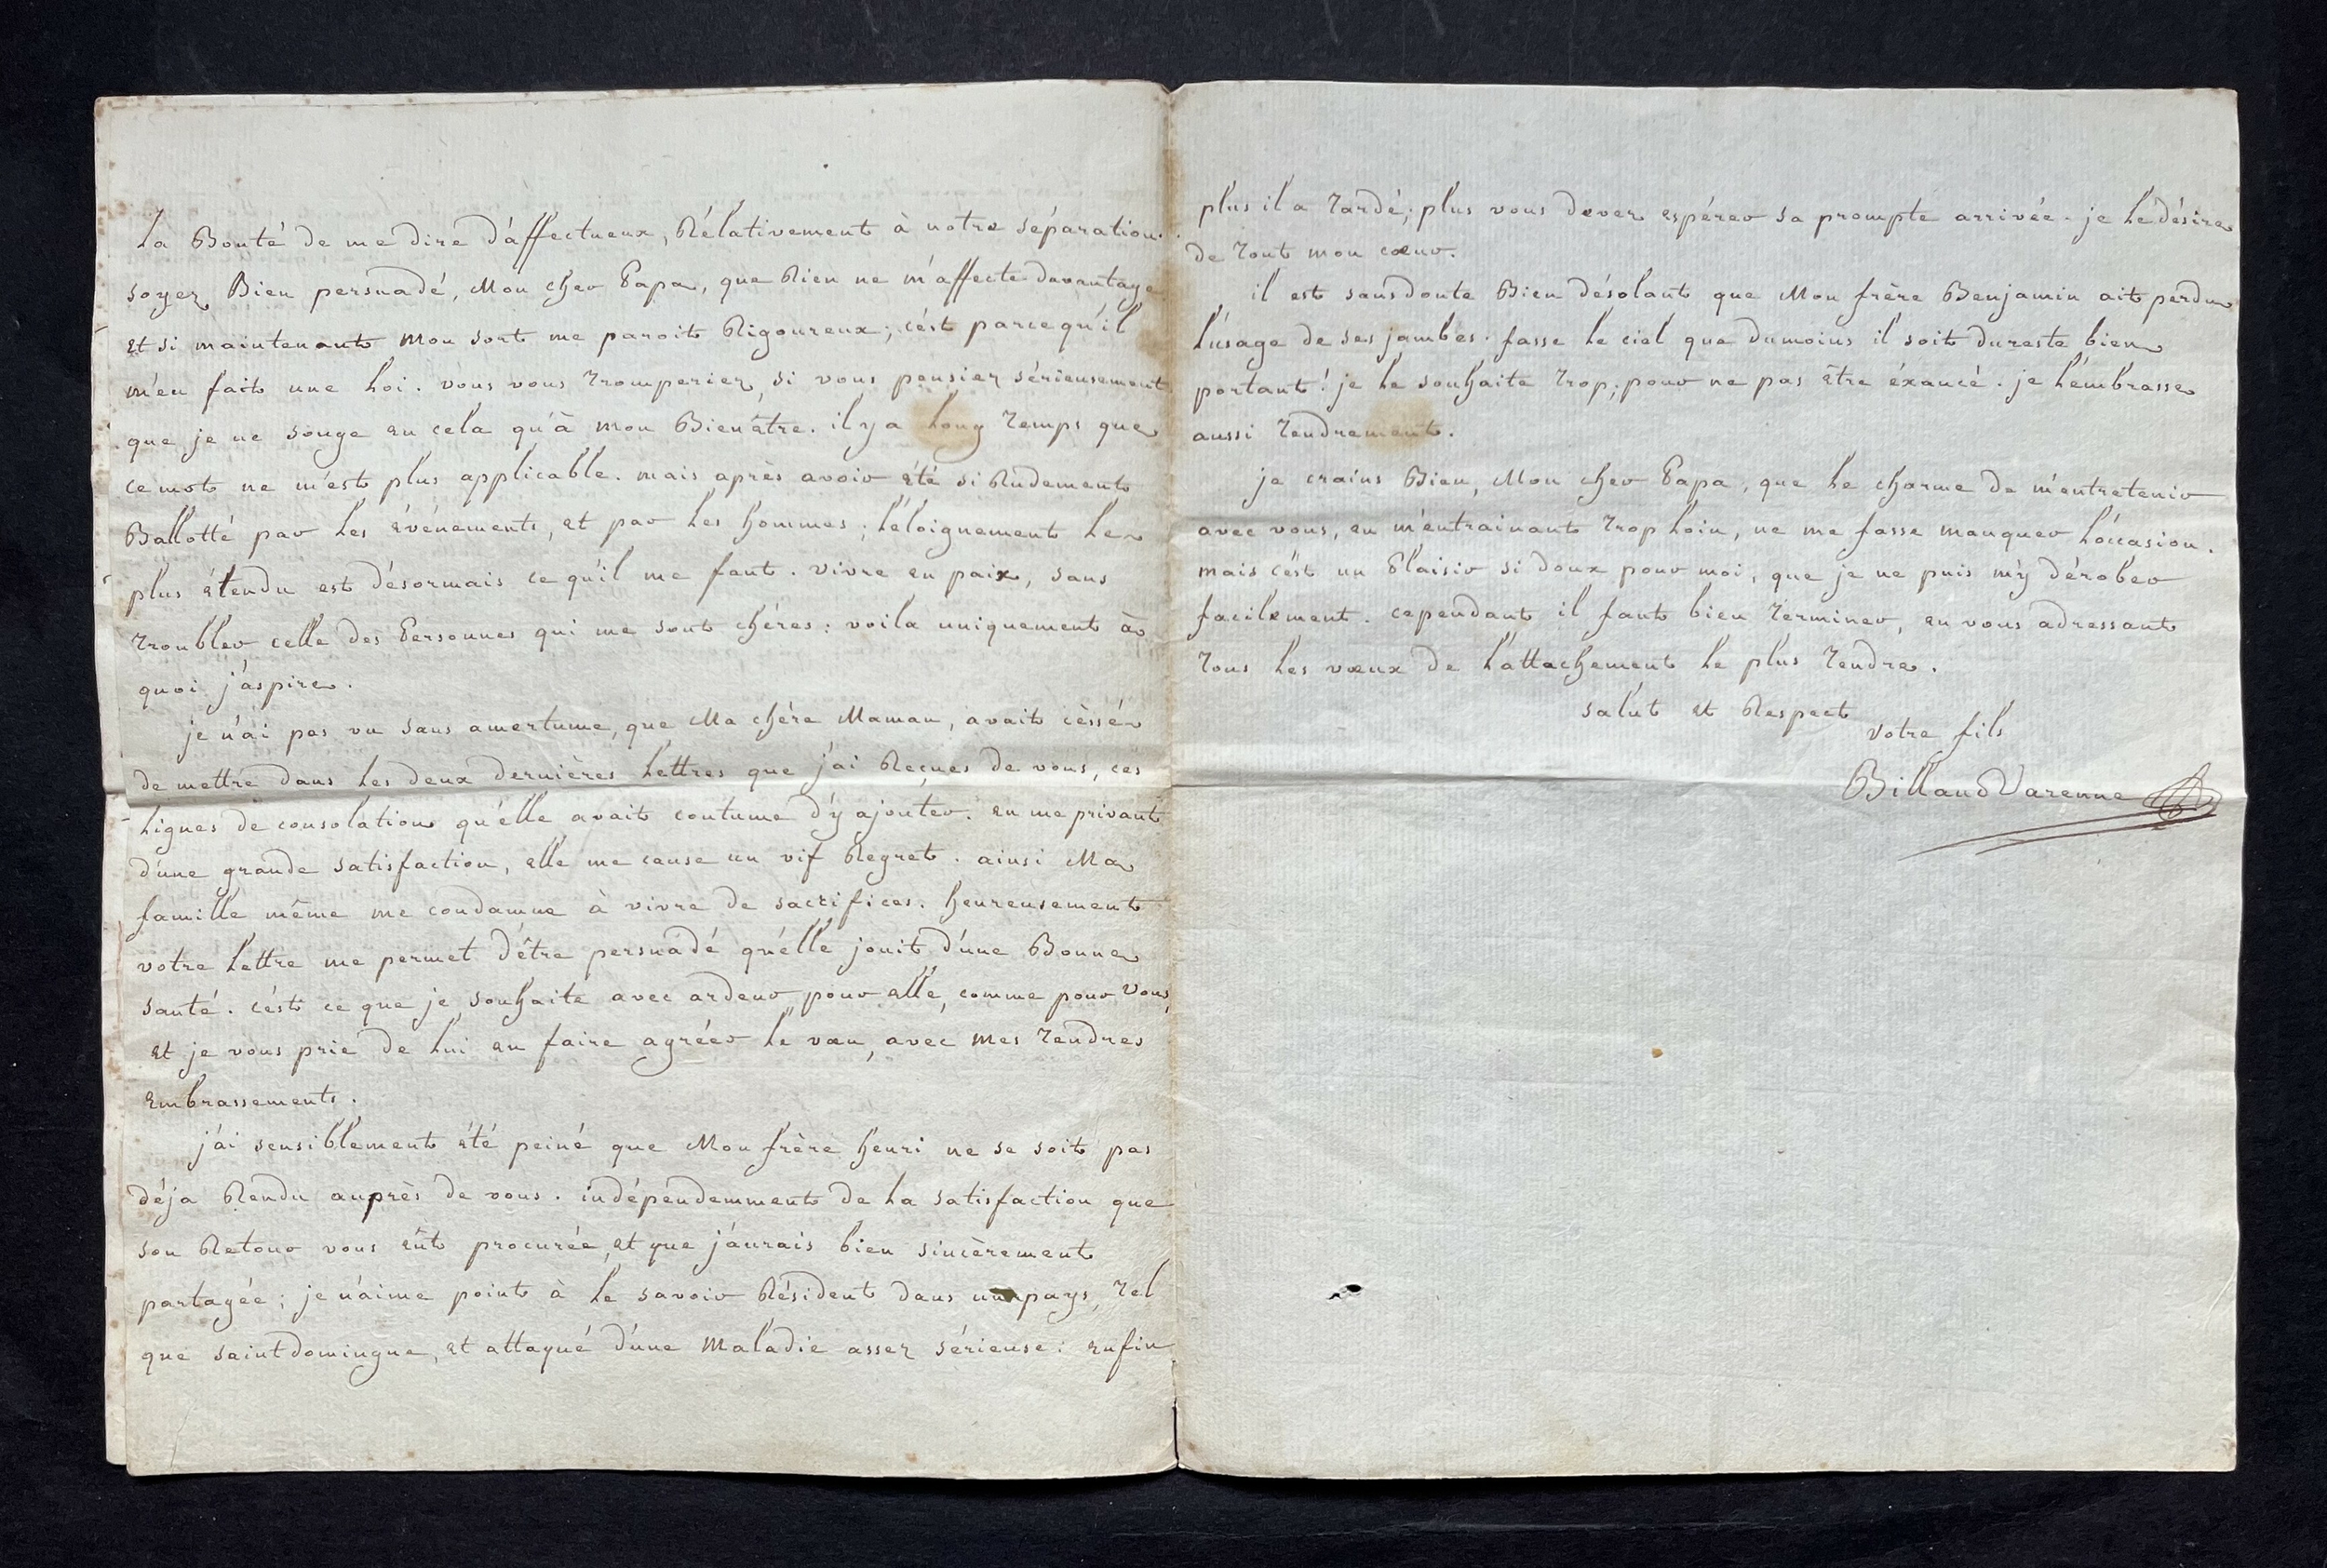 la Bonté de me dire d'affectueux, Rélativement à notre séparation.
soyez Bien persuadé, Mon cher Papa, que Rien ne m'affecte davantage
et si maintenant mon sort me paroit Rigoureux; c'est parcequ'il
m'en fait une loi. vous vous tromperiez, si vous pensiez sérieusement
que je ne songe en cela qu'à mon Bienêtre. il y a long temps que
ce mot ne m'est plus applicable. mais après avoir été si Rudement
Ballotté par les événements, et par les hommes; l'éloignement le
plus étendu est désormais ce qu'il me faut. vivre en paix, sans
troubler celle des Personnes qui me sont chéres: voila uniquement à
quoi j'aspire.
je n'ai pas vu sans amertume, que Ma chére Maman, avait cèssé
de mettre dans les deux dernières lettres que j'ai Reçues de vous, ces
lignes de consolation qu'elle avait coutume d'y ajouter. en me privant
d'une grande satisfaction, elle me cause un vif Regret. ainsi Ma
famille même me condamne à vivre de sacrifices. heureusement
votre lettre me permet d'être persuadé qu'elle jouit d'une Bonne
santé. c'est ce que je souhaite avec ardeur pour elle, comme pour vous,
et je vous prie de lui en faire agréer le vœu, avec mes tendres
embrassements.
j'ai sensiblement été peiné que Mon frère henri ne se soit pas
déja Rendu auprès de vous. indépendemment de la satisfaction que
son Retour vous eût procurée, et que j'aurais bien sincèrement
partagée; je n'aime point à le savoir Résident dans un pays, tel
que saintdomingue, et attaqué d'une maladie assez sérieuse: enfin
plus il a tardé; plus vous devez espérer sa prompte arrivée. je le désire
de tout mon cœur.
il est sansdoute Bien désolant que Mon frère Benjamin ait perdu
l'usage de ses jambes. fasse le ciel que dumoins il soit dureste bien
portant! je le souhaite trop, pour ne pas être éxaucé. je l'embrasse
aussi tendrement.
je crains Bien, Mon cher Papa, que le charme de m'entretenir
avec vous, en m'entrainant trop loin, ne me fasse manquer l'occasion.
mais c'est un Plaisir si doux pour moi, que je ne puis m'y dérober
facilement. cependant il faut bien terminer, en vous adressant
tous les vœux de l'attachement le plus tendre.
salut et Respect
votre fils
BillaudVarenne